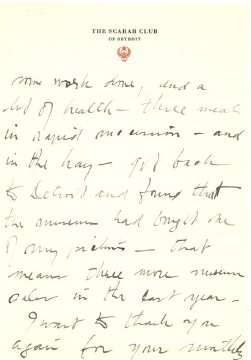 THE SCARAB CLUB
OF DETROIT
some work done, and a
lot of health — three weeks
in rapid succession — and
in the hay — got back
to Detroit and found that
the museum had bought one
of my pictures — that
means three more museum
sales in the last year —
I want to thank you
again for your monthly